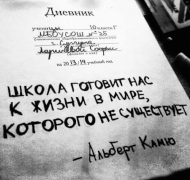 Дневник
учени 10 класс Г
МБУСОШ №25
на 2013-14 учебный год
ШКОЛА ГОТОВИТ НАС
К ЖИЗНИ В МИРЕ,
КОТОРОГО НЕ СУЩЕСТВУЕТ
– Альберт Камю